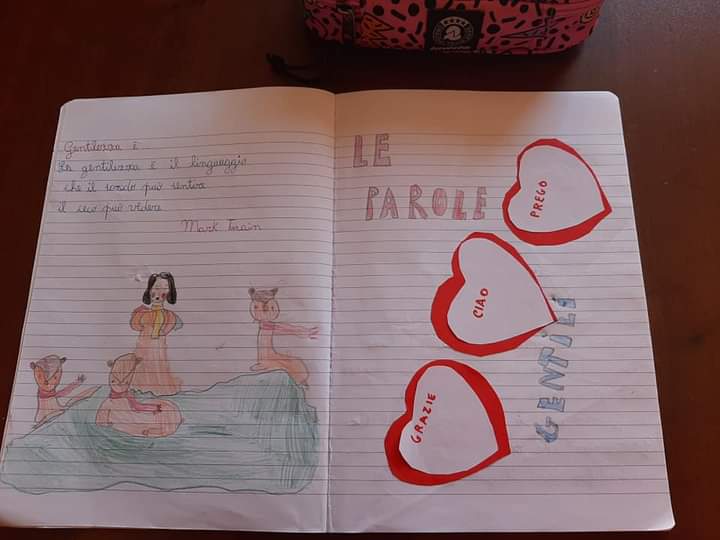 Gentilezza è
La gentilezza è il linguaggio
che il sordo può sentire
il ceco può vedere
Mark Twain
LE
PAROLE
GENTILI
PREGO
CIAO
GRAZIE